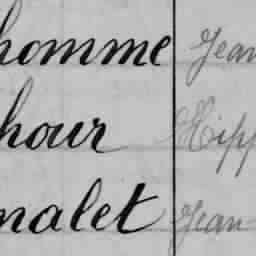 homme Jean
hour Hipp
nalet Jean